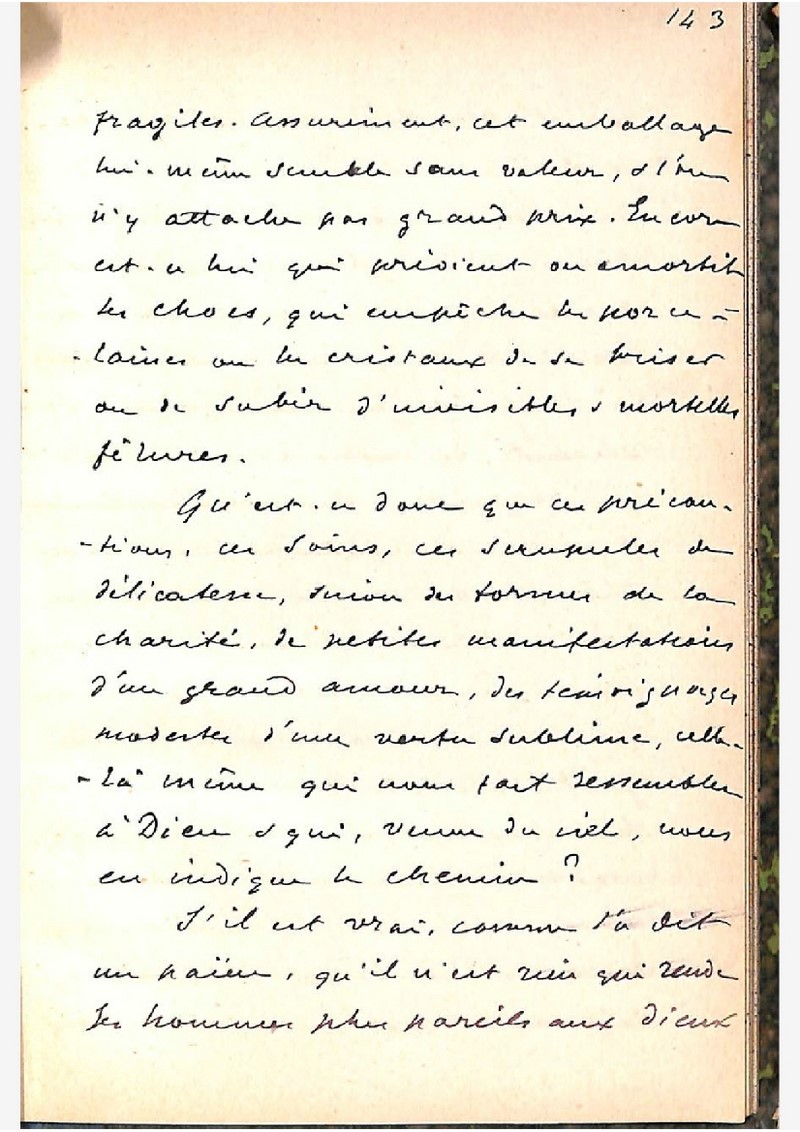 143
fragiles. Assurément, cet emballage
lui-même semble sans valeur, & l'on
n'y attache pas grand prix. Encore
est-ce lui qui prévient ou amortit
les chocs, qui empêche les porce-
-laines ou les cristaux de se briser
ou de subir d'invisibles & mortelles
fêlures.
Qu'est-ce donc que ces précau-
-tions, ces soins, ces scrupules de
délicatesse, sinon des formes de la
charité, de petites manifestations
d'un grand amour, des témoignages
modestes d'une vertu sublime, celle-
-là même qui nous fait ressembler
à Dieu & qui, venue du ciel, nous
en indique le chemin ?
S'il est vrai, comme l'a dit
un païen, qu'il n'est rien qui rende
les hommes plus pareils aux dieux